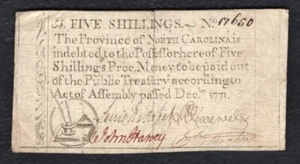 FIVE SHILLINGS. No. 17650
The Province of NORTH CAROLINA is
indebted to the Possessor hereof Five
Shillings Proc. Money to be paid out
of the Public Treasury according to
Act of Assembly passed Decr. 1771.
John Harvey